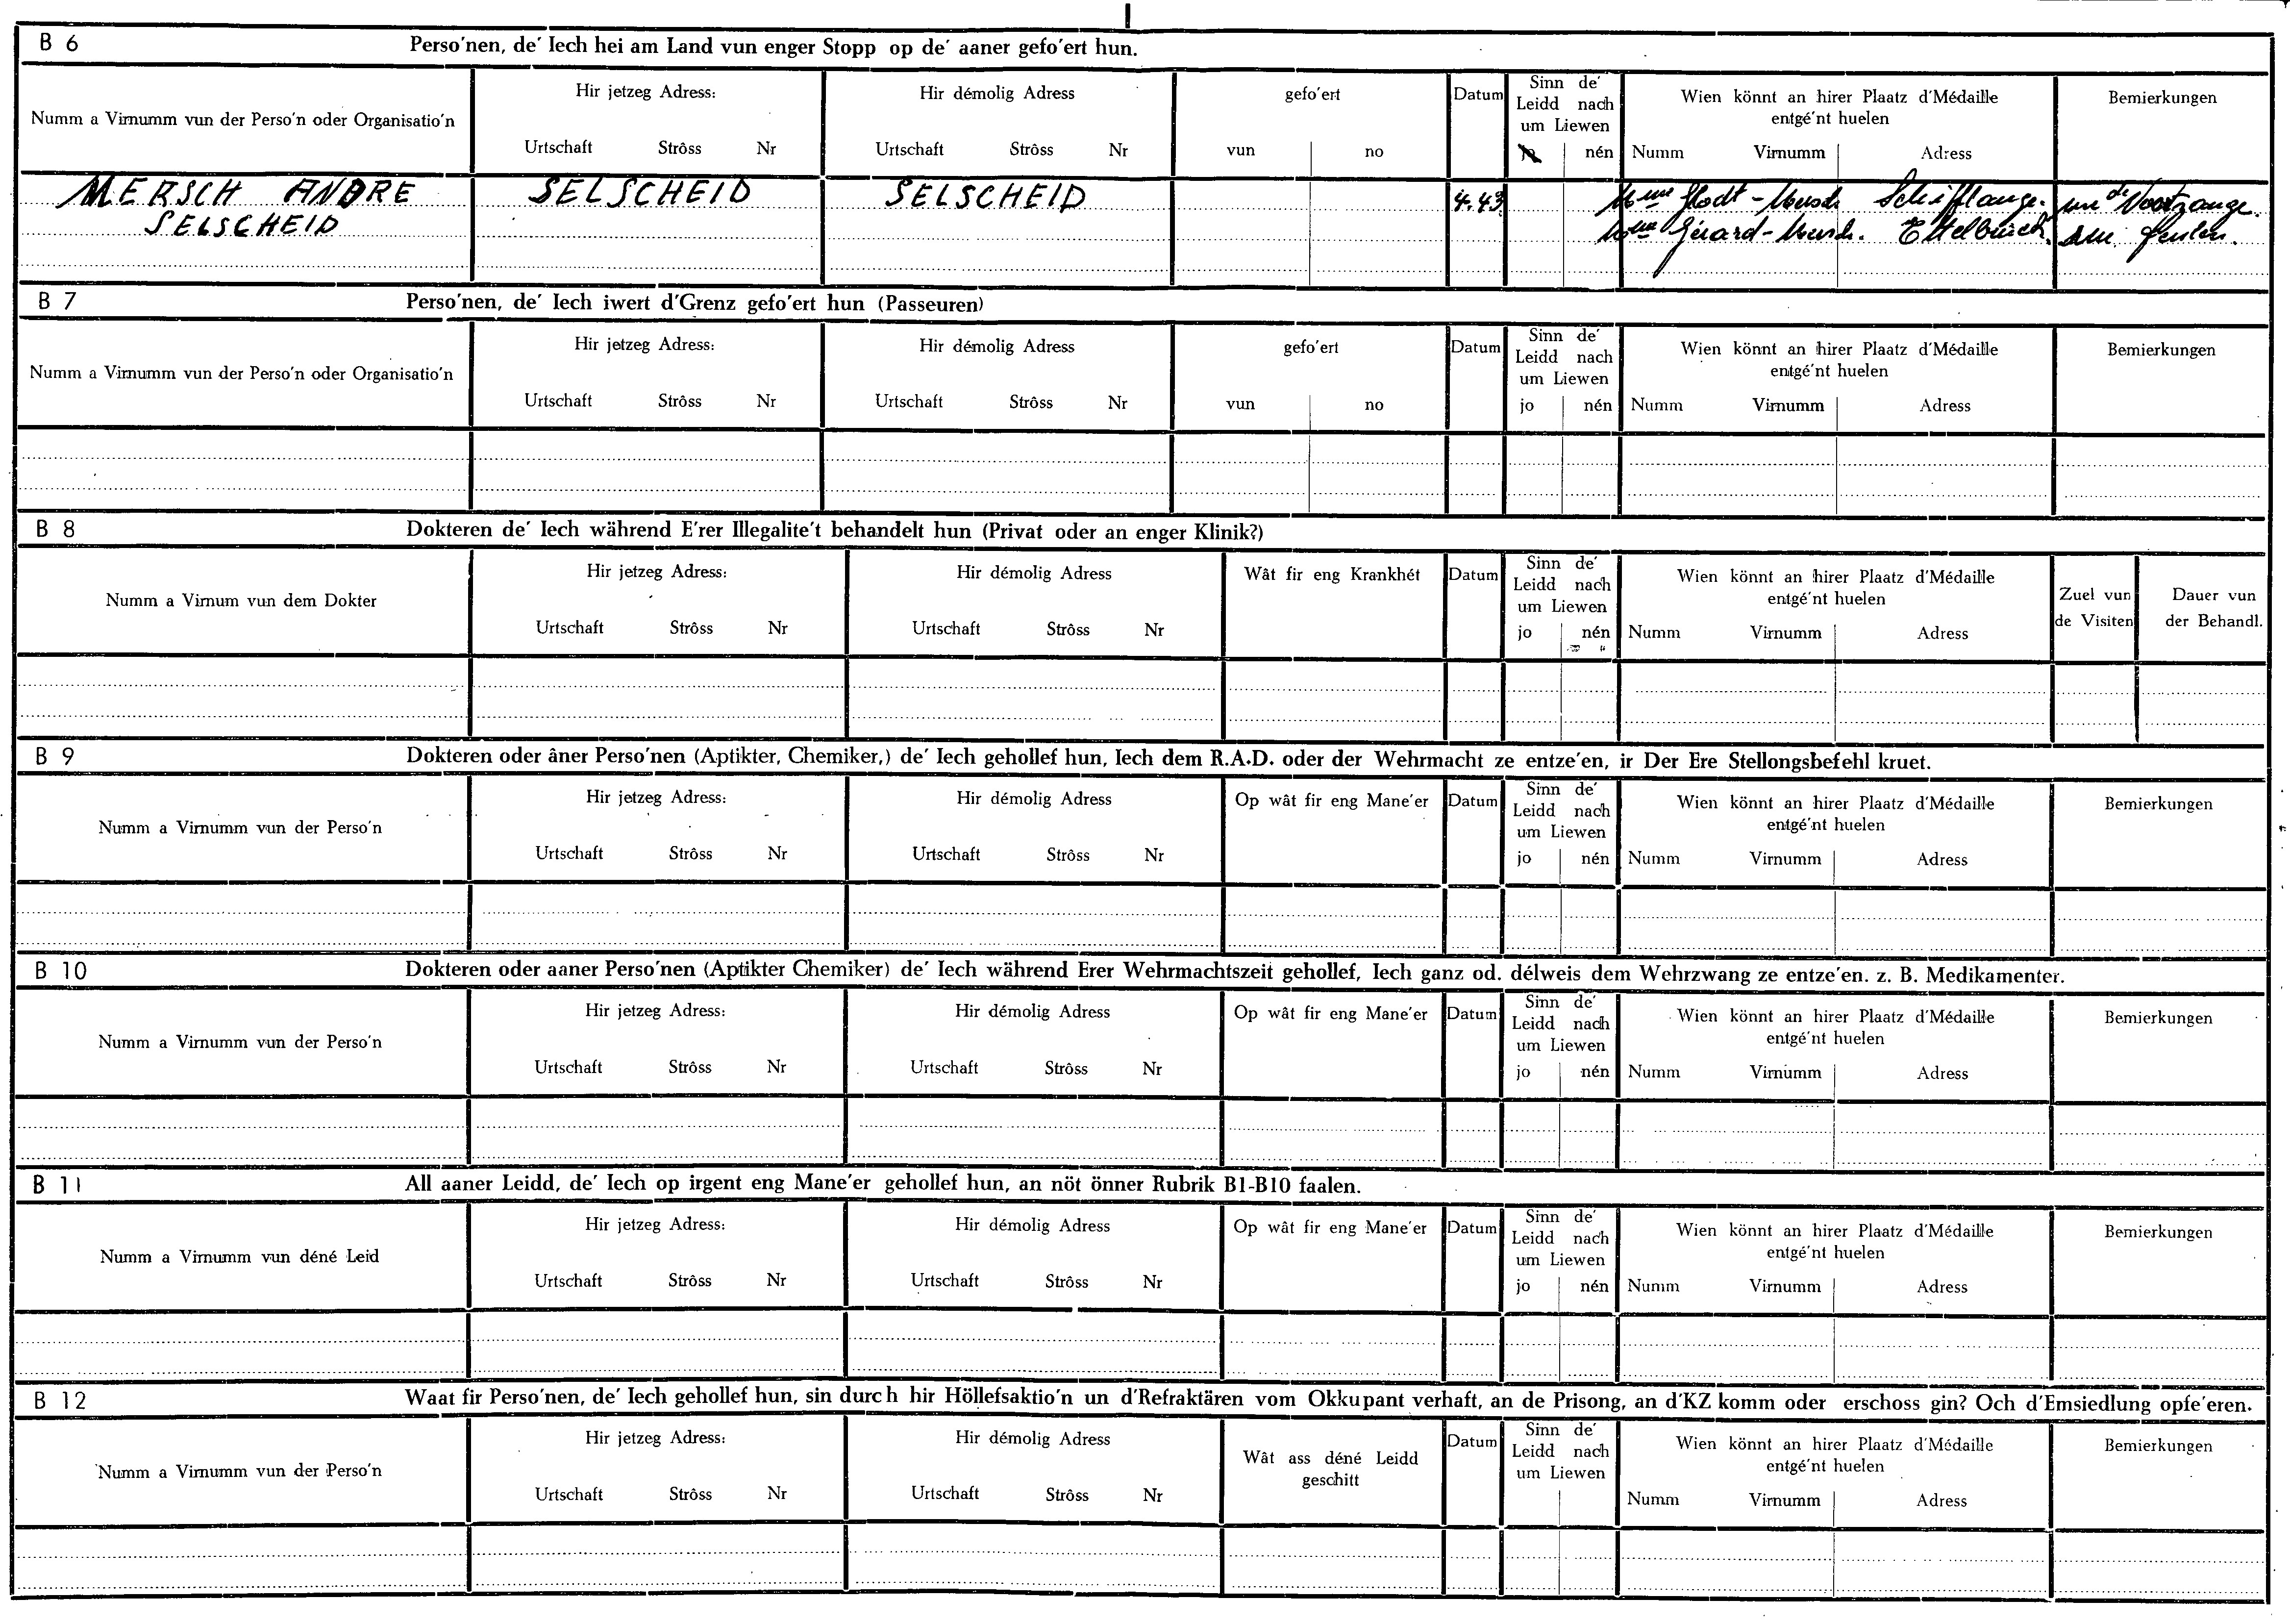 B 6 Perso'nen, de' Iech hei am Land vun enger Stopp op de' aaner gefo'ert hun.
Numm a Virnumm vun der Perso'n oder Organisatio'n
Hir jetzeg Adress:
Urtschaft Strôss Nr
Hir démolig Adress
Urtschaft Strôss Nr
gefo'ert
vun no
Datum
Sinn de'
Leidd nach
um Liewen
jo nén
Wien könnt an hirer Plaatz d'Médaille
entgé'nt huelen
Numm Virnumm Adress
Bemierkungen
MERSCH ANDRE SELSCHEID SELSCHEID 4.43 Mme Schifflange.
SELSCHEID Mme Gérard-Mersch. Ettelbruck.
B 7 Perso'nen, de' Iech iwert d'Grenz gefo'ert hun (Passeuren)
Numm a Virnumm vun der Perso'n oder Organisatio'n
Hir jetzeg Adress:
Urtschaft Strôss Nr
Hir démolig Adress
Urtschaft Strôss Nr
gefo'ert
vun no
Datum
Sinn de'
Leidd nach
um Liewen
jo nén
Wien könnt an hirer Plaatz d'Médaille
entgé'nt huelen
Numm Virnumm Adress
Bemierkungen
B 8 Dokteren de' Iech während E'rer Illegalite't behandelt hun (Privat oder an enger Klinik?)
Numm a Virnum vun dem Dokter
Hir jetzeg Adress:
Urtschaft Strôss Nr
Hir démolig Adress
Urtschaft Strôss Nr
Wât fir eng Krankhét
Datum
Sinn de'
Leidd nach
um Liewen
jo nén
Wien könnt an hirer Plaatz d'Médaille
entgé'nt huelen
Numm Virnumm Adress
Zuel vun
de Visiten
Dauer vun
der Behandl.
B 9 Dokteren oder âner Perso'nen (Aptikter, Chemiker,) de' Iech gehollef hun, Iech dem R.A.D. oder der Wehrmacht ze entze'en, ir Der Ere Stellongsbefehl kruet.
Numm a Virnumm vun der Perso'n
Hir jetzeg Adress:
Urtschaft Strôss Nr
Hir démolig Adress
Urtschaft Strôss Nr
Op wât fir eng Mane'er
Datum
Sinn de'
Leidd nach
um Liewen
jo nén
Wien könnt an hirer Plaatz d'Médaille
entgé'nt huelen
Numm Virnumm Adress
Bemierkungen
B 10 Dokteren oder aaner Perso'nen (Aptikter Chemiker) de' Iech während Erer Wehrmachtszeit gehollef, Iech ganz od. délweis dem Wehrzwang ze entze'en. z. B. Medikamenter.
Numm a Virnumm vun der Perso'n
Hir jetzeg Adress:
Urtschaft Strôss Nr
Hir démolig Adress
Urtschaft Strôss Nr
Op wât fir eng Mane'er
Datum
Sinn de'
Leidd nach
um Liewen
jo nén
Wien könnt an hirer Plaatz d'Médaille
entgé'nt huelen
Numm Virnumm Adress
Bemierkungen
B 11 All aaner Leidd, de' Iech op irgent eng Mane'er gehollef hun, an nöt önner Rubrik B1-B10 faalen.
Numm a Virnumm vun déné Leid
Hir jetzeg Adress:
Urtschaft Strôss Nr
Hir démolig Adress
Urtschaft Strôss Nr
Op wât fir eng Mane'er
Datum
Sinn de'
Leidd nach
um Liewen
jo nén
Wien könnt an hirer Plaatz d'Médaille
entgé'nt huelen
Numm Virnumm Adress
Bemierkungen
B 12 Waat fir Perso'nen, de' Iech gehollef hun, sin durch hir Höllefsaktio'n un d'Refraktären vom Okkupant verhaft, an de Prisong, an d'KZ komm oder erschoss gin? Och d'Emsiedlung opfe'eren.
Numm a Virnumm vun der Perso'n
Hir jetzeg Adress:
Urtschaft Strôss Nr
Hir démolig Adress
Urtschaft Strôss Nr
Wât ass déné Leidd
geschitt
Datum
Sinn de'
Leidd nach
um Liewen
Wien könnt an hirer Plaatz d'Médaille
entgé'nt huelen
Numm Virnumm Adress
Bemierkungen